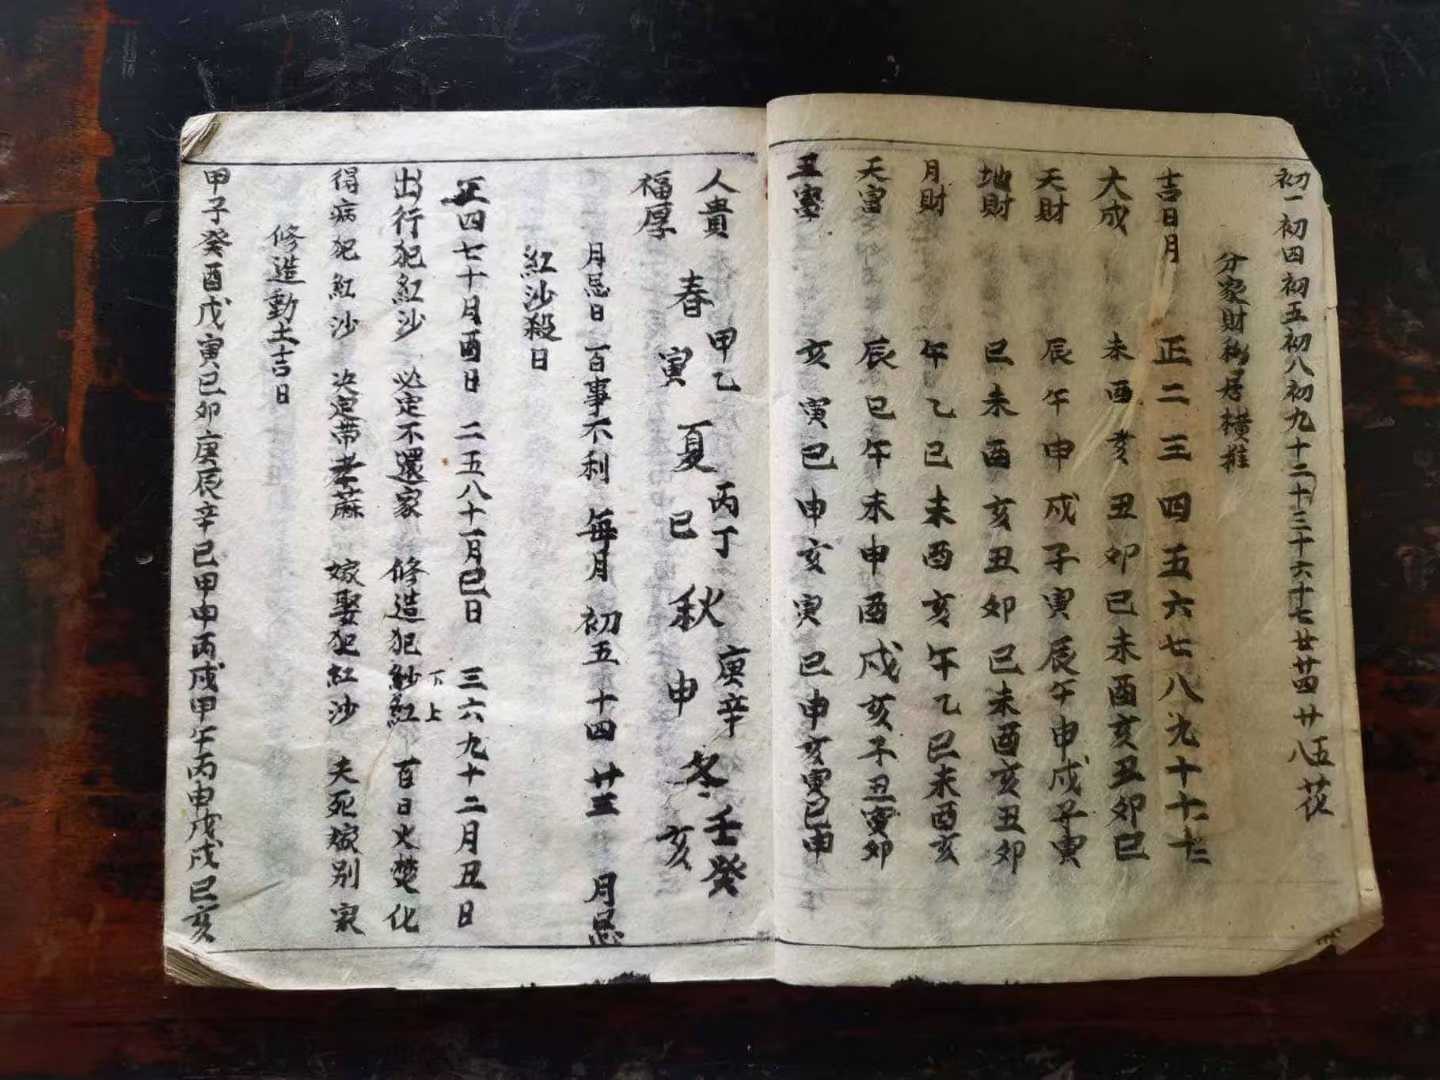 初一初四初五初八初九十二十三十六十七廿廿四廿五廿八花
分家財移居橫推
吉日月 正二三四五六七八九十十一十二
大成 未酉亥丑卯巳未酉亥丑卯巳
天財 辰午申戌子寅辰午申戌子寅
地財 巳未酉亥丑卯巳未酉亥丑卯
月財 午乙巳未酉亥午乙巳未酉亥
天富 辰巳午未申酉戌亥子丑寅卯
亥寅巳申亥寅巳申亥寅巳申
人貴 甲乙 丙丁 庚辛 壬癸
福厚 春寅 夏巳 秋申 冬亥
月忌日 百事不利 每月初五十四廿三 月忌
紅沙殺日
正四七十月酉日 二五八十一月巳日 三六九十二月丑日
出行犯紅沙 必定不還家 修造犯紗紅 下上 百日火焚化
得病犯紅沙 決定帶孝蔴 嫁娶犯紅沙 夫死嫁別家
修造動土吉日
甲子癸酉戊寅己卯庚辰辛巳甲申丙戌甲午丙申戊戌己亥